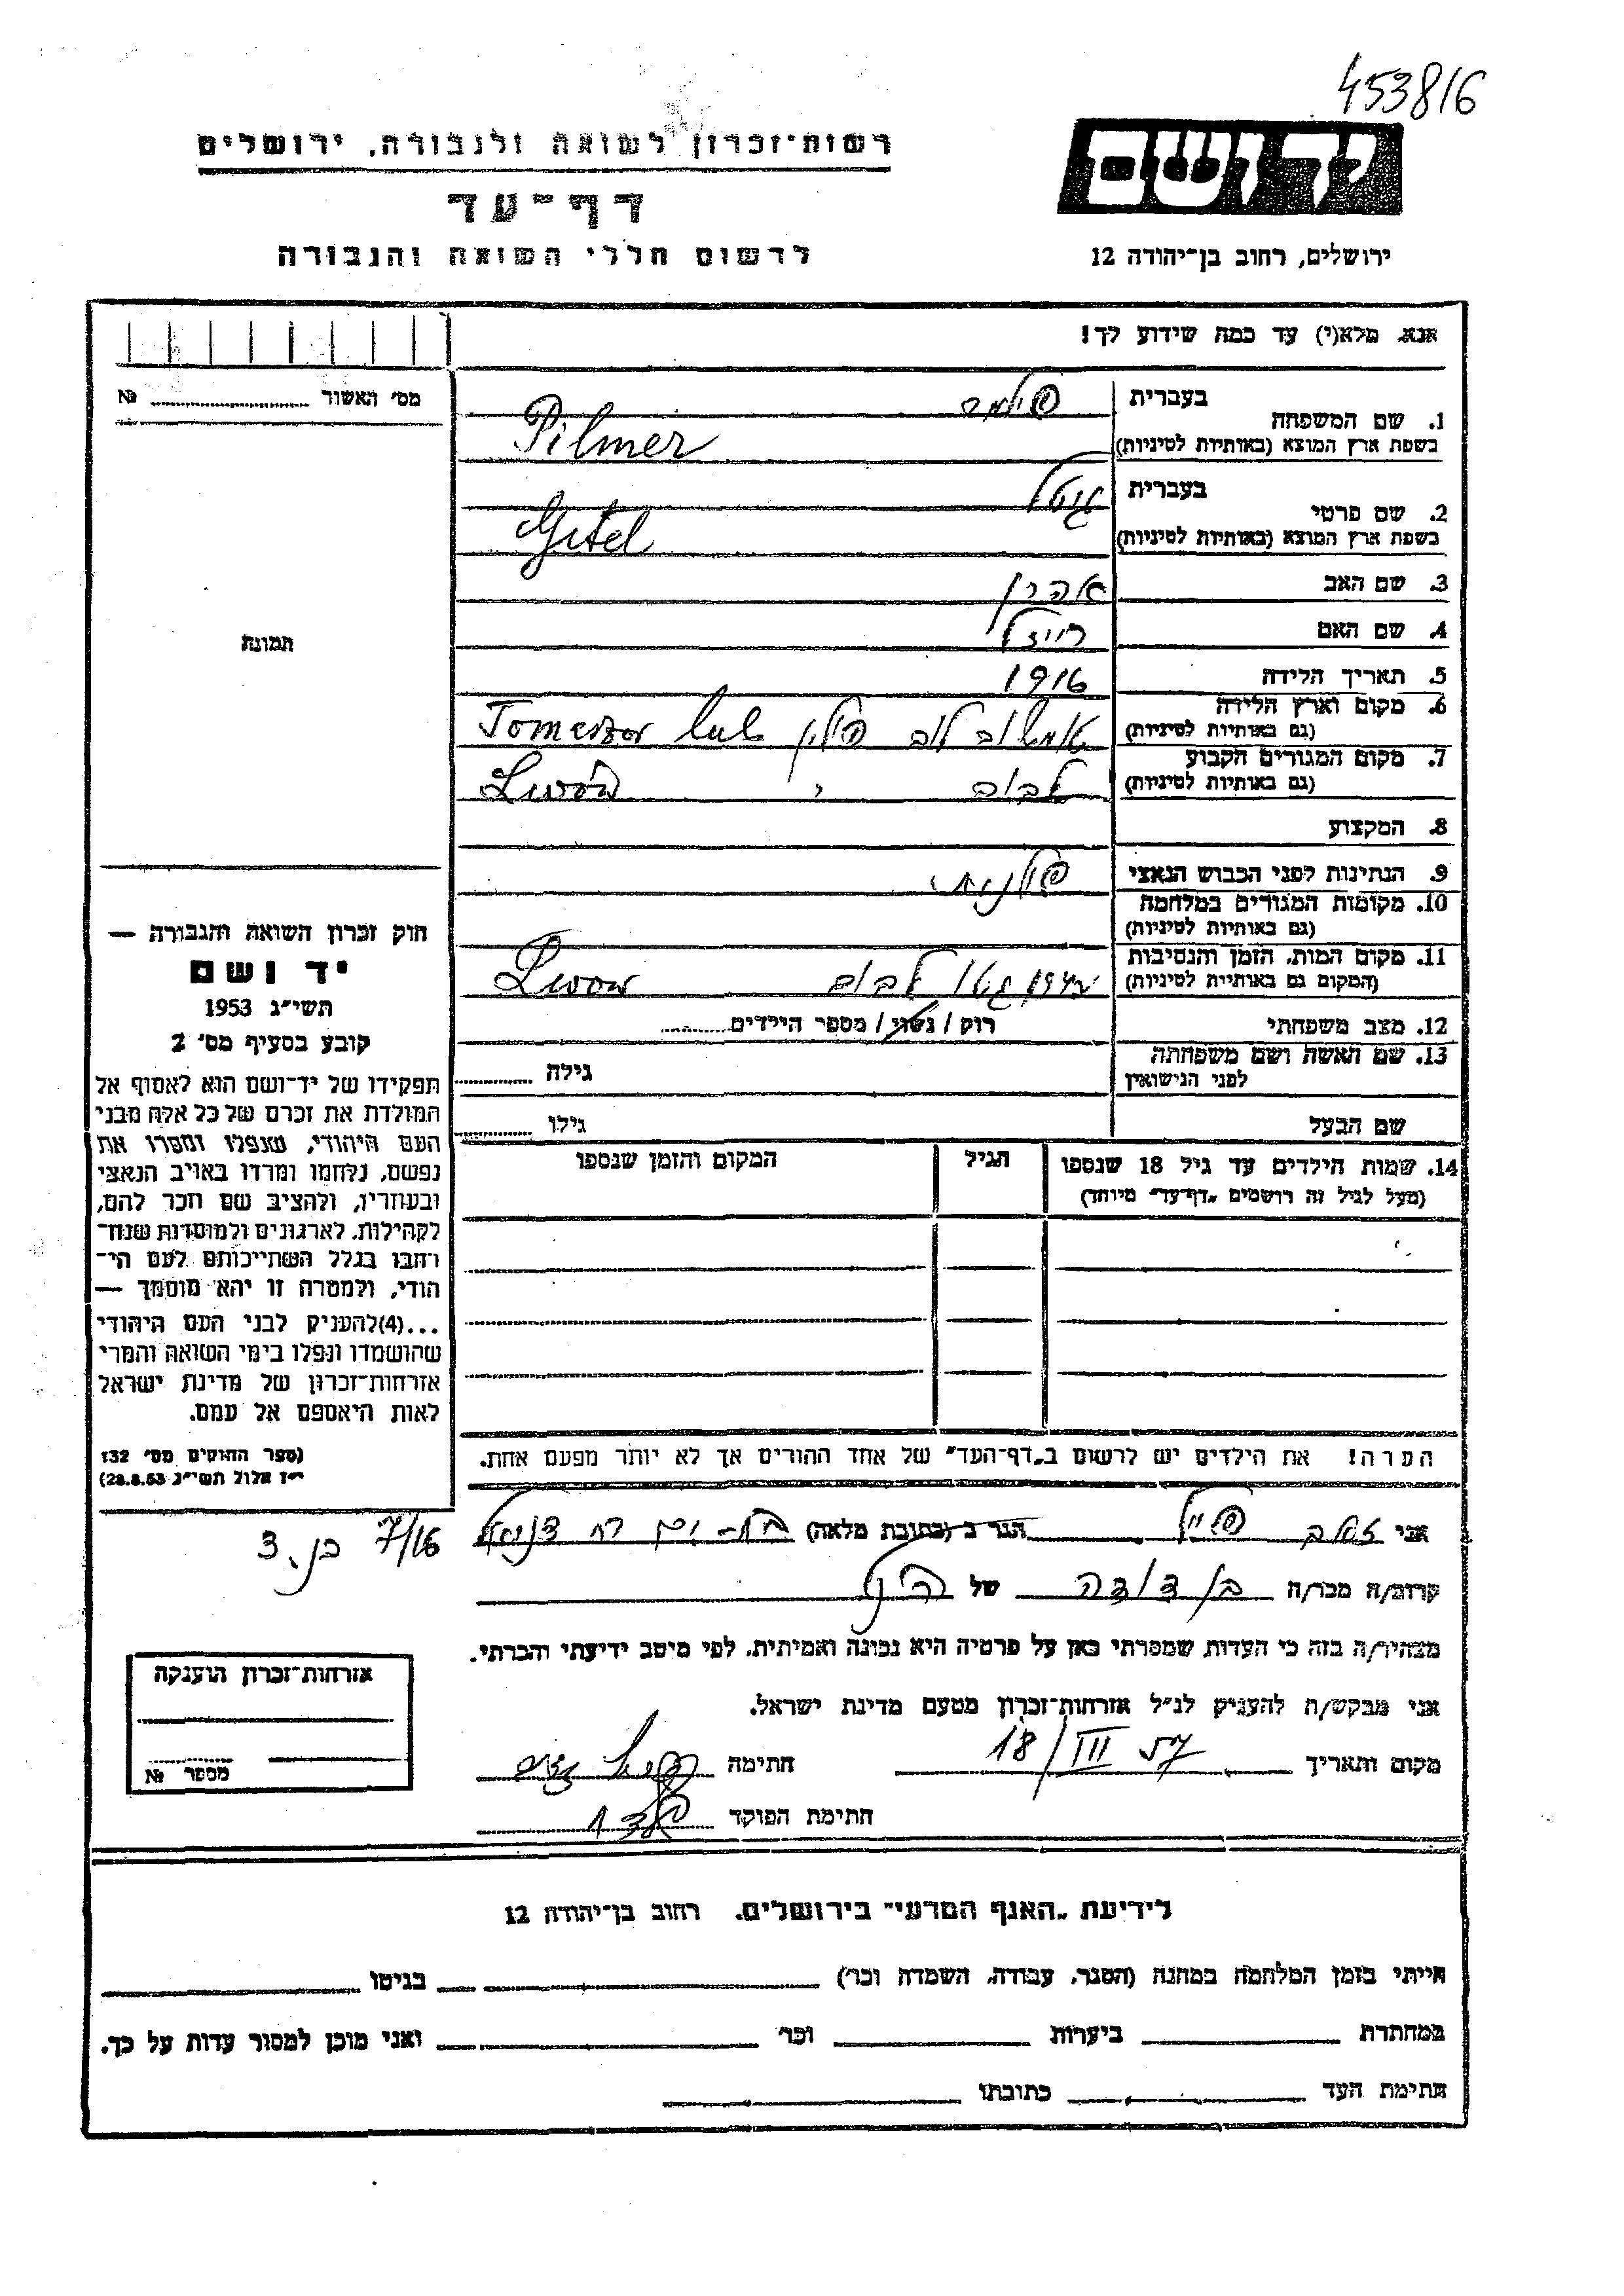 453816
רשות־זכרון לשואה ולגבורה, ירושלים
יד ושם
דף־עד
לרשום חללי השואה והגבורה
ירושלים, רחוב בן־יהודה 12
אנא, מלא(י) עד כמה שידוע לך!
מס' האשור №
1. שם המשפחה בעברית פילמר
בשפת ארץ המוצא (באותיות לטיניות) Pilmer
2. שם פרטי בעברית גיטל
בשפת ארץ המוצא (באותיות לטיניות) Gitel
3. שם האב אהרן
4. שם האם רייזל
5. תאריך הלידה 1916
6. מקום וארץ הלידה
(גם באותיות לטיניות) פולין
7. מקום המגורים הקבוע לבוב
(גם באותיות לטיניות) Lwów
8. המקצוע
9. הנתינות לפני הכבוש הנאצי פולנית
10. מקומות המגורים במלחמה
(גם באותיות לטיניות)
11. מקום המות, הזמן והנסיבות גטו לבוב
(המקום גם באותיות לטיניות) Lwow
12. מצב משפחתי רוק / נשוי / מספר הילדים
13. שם האשה ושם משפחתה
לפני הנישואין גילה
שם הבעל גילו
14. שמות הילדים עד גיל 18 שנספו הגיל המקום והזמן שנספו
(מעל לגיל זה רושמים "דף־עד" מיוחד)
הערה! את הילדים יש לרשום ב"דף־העד" של אחד ההורים אך לא יותר מפעם אחת.
תמונה
חוק זכרון השואה והגבורה —
יד ושם
תשי"ג 1953
קובע בסעיף מס' 2
תפקידו של יד־ושם הוא לאסוף אל
המולדת את זכרם של כל אלה מבני
העם היהודי, שנפלו ומסרו את
נפשם, נלחמו ומרדו באויב הנאצי
ובעוזריו, ולהציב שם וזכר להם,
לקהילות, לארגונים ולמוסדות שנח־
רחבו בגלל השתייכותם לעם הי־
הודי, ולמטרה זו יהא מוסמך —
...(4)להעניק לבני העם היהודי
שהושמדו ונפלו בימי השואה והמרי
אזרחות־זכרון של מדינת ישראל
לאות היאספם אל עמם.
(ספר החוקים מס' 132
י"ז אלול תשי"ג 28.8.53)
אני הגר ב (כתובת מלאה) בת-ים 7/16
קרוב/ה מכר/ה בן דודה של הנ"ל
מצהיר/ה בזה כי העדות שמסרתי כאן על פרטיה היא נכונה ואמיתית, לפי מיטב ידיעתי והכרתי.
אני מבקש/ת להעניק לנ"ל אזרחות־זכרון מטעם מדינת ישראל.
מקום ותאריך 18/III 57 חתימה
חתימת הפוקד
אזרחות־זכרון הוענקה
מספר №
לידיעת "האגף המדעי" בירושלים, רחוב בן־יהודה 12
הייתי בזמן המלחמה במחנה (הסגר, עבודה, השמדה וכר') בגיטו
במחתרת ביערות וכר' ואני מוכן למסור עדות על כך.
חתימת העד כתובתו